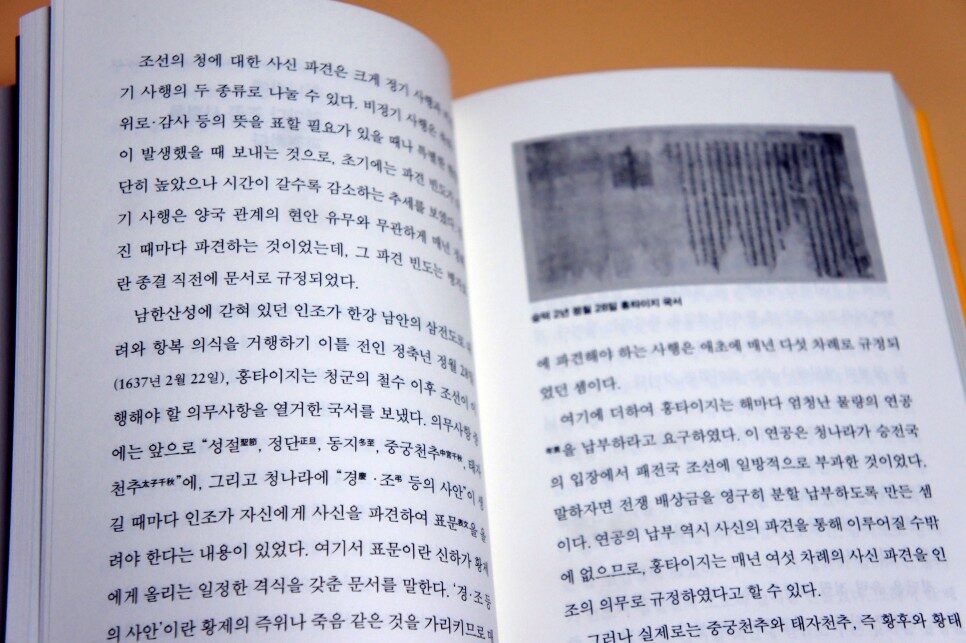 조선의 청에 대한 사신 파견은 크게 정기 사행과
기 사행의 두 종류로 나눌 수 있다. 비정기 사행은
위로·감사 등의 뜻을 표할 필요가 있을 때나 특별한
이 발생했을 때 보내는 것으로, 초기에는 파견 빈도가
단히 높았으나 시간이 갈수록 감소하는 추세를 보였다.
기 사행은 양국 관계의 현안 유무와 무관하게 매년
진 때마다 파견하는 것이었는데, 그 파견 빈도는 병자호
란 종결 직전에 문서로 규정되었다.
남한산성에 갇혀 있던 인조가 한강 남안의 삼전도로
려와 항복 의식을 거행하기 이틀 전인 정축년 정월 28일
(1637년 2월 22일), 홍타이지는 청군의 철수 이후 조선이 이
행해야 할 의무사항을 열거한 국서를 보냈다. 의무사항 중
에는 앞으로 “성절聖節, 정단正旦, 동지冬至, 중궁천추中宮千秋, 태자
천추太子千秋”에, 그리고 청나라에 “경慶·조弔 등의 사안”이 생
길 때마다 인조가 자신에게 사신을 파견하여 표문表文을 올
려야 한다는 내용이 있었다. 여기서 표문이란 신하가 황제
에게 올리는 일정한 격식을 갖춘 문서를 말한다. ‘경·조 등
의 사안’이란 황제의 즉위나 죽음 같은 것을 가리키므로, 매
숭덕 2년 정월 28일 홍타이지 국서
에 파견해야 하는 사행은 애초에 매년 다섯 차례로 규정되
었던 셈이다.
여기에 더하여 홍타이지는 해마다 엄청난 물량의 연공
年貢을 납부하라고 요구하였다. 이 연공은 청나라가 승전국
의 입장에서 패전국 조선에 일방적으로 부과한 것이었다.
말하자면 전쟁 배상금을 영구히 분할 납부하도록 만든 셈
이다. 연공의 납부 역시 사신의 파견을 통해 이루어질 수밖
에 없으므로, 홍타이지는 매년 여섯 차례의 사신 파견을 인
조의 의무로 규정하였다고 할 수 있다.
그러나 실제로는 중궁천추와 태자천추, 즉 황후와 황태